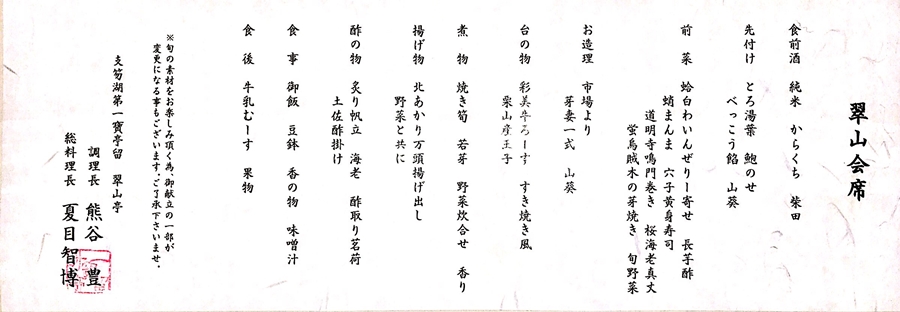 翠山会席
食前酒 純米 からくち 柴田
先付け とろ湯葉 鮑のせ
べっこう餡 山葵
前菜 蛤白わいんぜりー寄せ 長芋酢
蛸まんま 穴子黄身寿司
道明寺鳴門巻き 桜海老真丈
蛍烏賊木の芽焼き 旬野菜
お造理 市場より
芽妻一式 山葵
台の物 彩美牛ろーす すき焼き風
栗山産玉子
煮物 焼き筍 若芽 野菜炊合せ 香り
揚げ物 北あかり万頭揚げ出し
野菜と共に
酢の物 炙り帆立 海老 酢取り茗荷
土佐酢掛け
食事 御飯 豆鉢 香の物 味噌汁
食後 牛乳むーす 果物
※旬の素材をお楽しみ頂く為、御献立の一部が
変更になる事もございます。ご了承下さいませ。
支笏湖第一寶亭留 翠山亭
調理長 熊谷 豊
総料理長 夏目智博